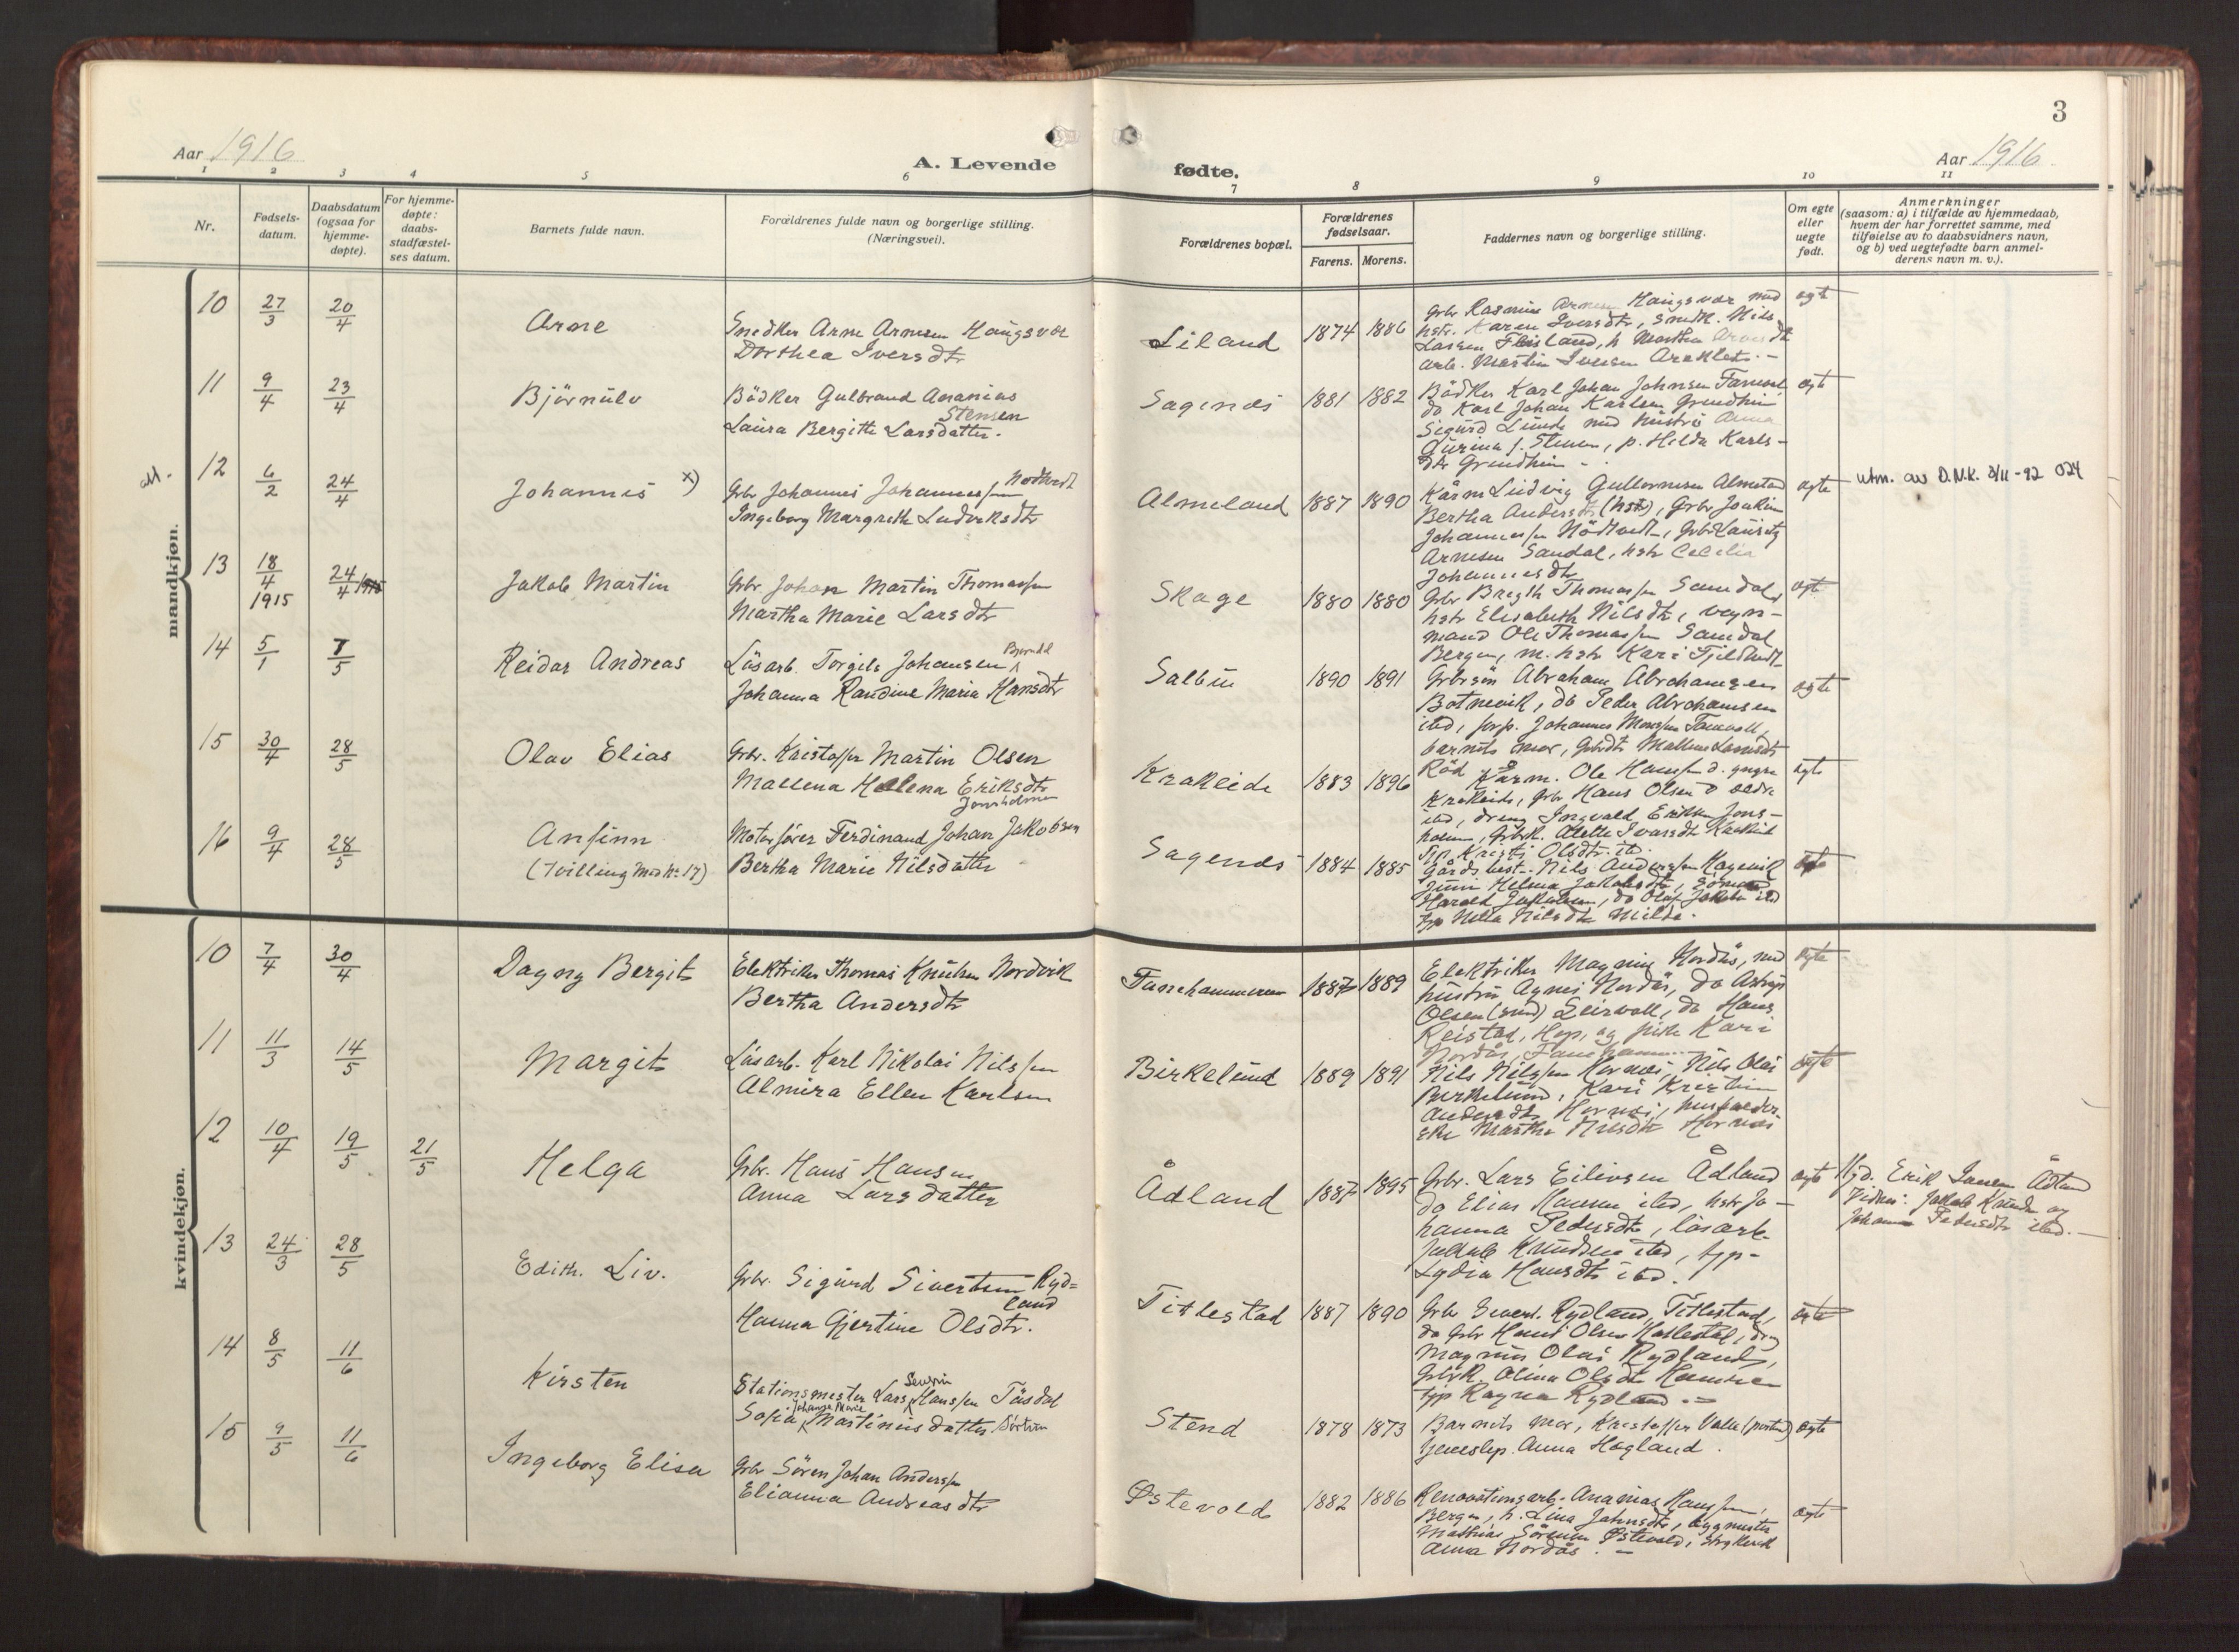 3
Aar 1916
A. Levende
fødte.
Aar 1916
1 2 3 4 5 6 7 8 9 10 11
Nr.
Fødsels-
datum.
Daabsdatum
(ogsaa for
hjemme-
døpte).
For hjemme-
døpte:
daabs-
stadfæstel-
ses datum.
Barnets fulde navn.
Forældrenes fulde navn og borgerlige stilling.
(Næringsvei).
Forældrenes bopæl.
Forældrenes
fødselsaar.
Farens. Morens.
Faddernes navn og borgerlige stilling.
Om egte
eller
uegte
født.
Anmerkninger
(saasom: a) i tilfælde av hjemmedaab,
hvem der har forrettet samme, med
tilføielse av to daabsvidners navn,
og b) ved uegtefødte barn anmel-
derens navn m. v.).
mandkjøn.
10 27/3 20/4 Arne
Snedker Arne Arnesen Haugsvær
Dorthea Iversdtr
Liland 1874 1886
Grbr Rasmus Arnesen Haugsvær med
hstr. Karen Iversdtr, Snedk. Nils
Larsen Flesland, h Martha
arb. Martin Iversen
egte
11 9/4 23/4 Bjørnulv
Bödker Gulbrand Ananias
Stensen
Laura Bergitte Larsdatter.
Sagenes 1881 1882
Bödker Karl Johan Johnsen
do Karl Johan Karlsen Grendheim
Sigurd Lunde med hustru Anna
Gurina f. Stensen, p. Hilda Karls-
dtr Grendheim -
egte
12 6/2 24/4 Johannes x)
Grbr Johannes Johannessen Nødtvedt
Ingeborg Margrethe Ludviksdtr
Almeland 1887 1890
Kårm Ludvig Gullormsen Almeland
Bertha Andersdtr (hstr), Grbr Joakim
Johannessen Nödtvedt, Grbr Lauritz
Arnesen Sandal, hstr Cecelia
Johannesdtr
egte
utm. av D.N.K. 3/11-92 024
13 18/4 1915 24/4 Jakob Martin
Grbr Johan Martin Thomassen
Martha Marie Larsdtr
Skage 1880 1880
Grbr Thomassen Samdal,
hstr Elisabeth Nilsdtr, vogn-
mand Ole Thomassen Samdal
Bergen, m. hstr Kari
egte
14 5/1 7/5 Reidar Andreas
Lösarb. Torgils Johansen
Johanna Randine Maria Hansdtr
Salbu 1890 1891
Grbrsön Abraham Abrahamsen
Botnevik, do Peder Abrahamsen
ibd, Johannes
barnets mor, Grbrdtr
egte
15 30/4 28/5 Olav Elias
Grbr. Kristoffer Martin Olsen
Mallena Helena Eriksdtr
Jonsholmen
Krakeide 1883 1896
Kårm. Ole Hanssen d. yngre
Krakeide, Grbr Hans Olsen d ældre
ibd, dreng Ingvald Eriksen Jons-
holmen, Grbrk. Alette Ivarsdtr
Kristi Olsdtr. ibd.
egte
16 9/4 28/5 Anfinn
(Tvilling med No 17)
Motorförer Ferdinand Johan Jakobsen
Bertha Marie Nilsdatter
Sagenes 1884 1885
Gårdsbest. Nils Anderssen Hagevik
Helma Jakobsdtr, Sömand
Harald Jakobsen, do Olaf Jakobs ibd
Nilsdtr Milde.
kvindekjøn.
10 7/4 30/4 Dagny Bergit
Elektriker Thomas Knutsen Nordvik
Bertha Andersdtr
Fanehammeren 1887 1889
Elektriker Magnus Nordås, med
hustru Agnes Nordås, do
Olsen Leirvoll, do Hans
Reistad, Hop, og pike Kari
Nordås, Faneham
egte
11 11/3 14/5 Margit
Lösarb. Karl Nikolai Nilssen
Almira Ellen Karlsen
Birkelund 1889 1891
Nils Nilssen Hornes, Nils Olai
Birkelund, Kari Kristine
Andersdtr Hornes,
Martha Nilsdtr Hornes
egte
12 10/4 19/5 21/5 Helga
Grbr. Hans Hansen
Anna Larsdatter
Ådland 1887 1895
Grbr. Lars Eilivsen Ådland
do Elias Hansen ibd, hstr Jo-
hanna Pedersdtr, lösarb.
Jakob Knudsen ibd, tjp-
Lydia Hansdtr ibd.
egte
Hjd. Erik Ådland
Vidner: Jakob Knudsen og
Johanna Pedersdtr ibd. -
13 24/3 28/5 Edith. Liv.
Grbr. Sigurd Sivertsen Ryd=
land
Hanna Gjertine Olsdtr.
Titlestad 1887 1890
Grbr Sivert. Rydland, Titlestad,
do Grbr Hans Olsen
Magnus Olai Rydland,
Grbrk. Olina Olsdtr Hamre
tjp Ragna Rydland. -
egte
14 8/5 11/6 Kirsten
Stationsmester Lars Severin Hanssen Tösdal
Sofia Johanna Marie Martinusdatter
Stend 1878 1873
Barnets mor, Kristoffer Valle
Anna Hogland.
egte
15 9/5 11/6 Ingeborg Elisa
Grbr Sören Johan Anderssen
Elianna Andreasdtr
Østevold 1882 1886
Renovationsarb. Ananias Hanssen,
Bergen, h. Lina Johnsdtr, bygmester
Mathias Sörensen Østevold,
Anna Nordås. -
egte